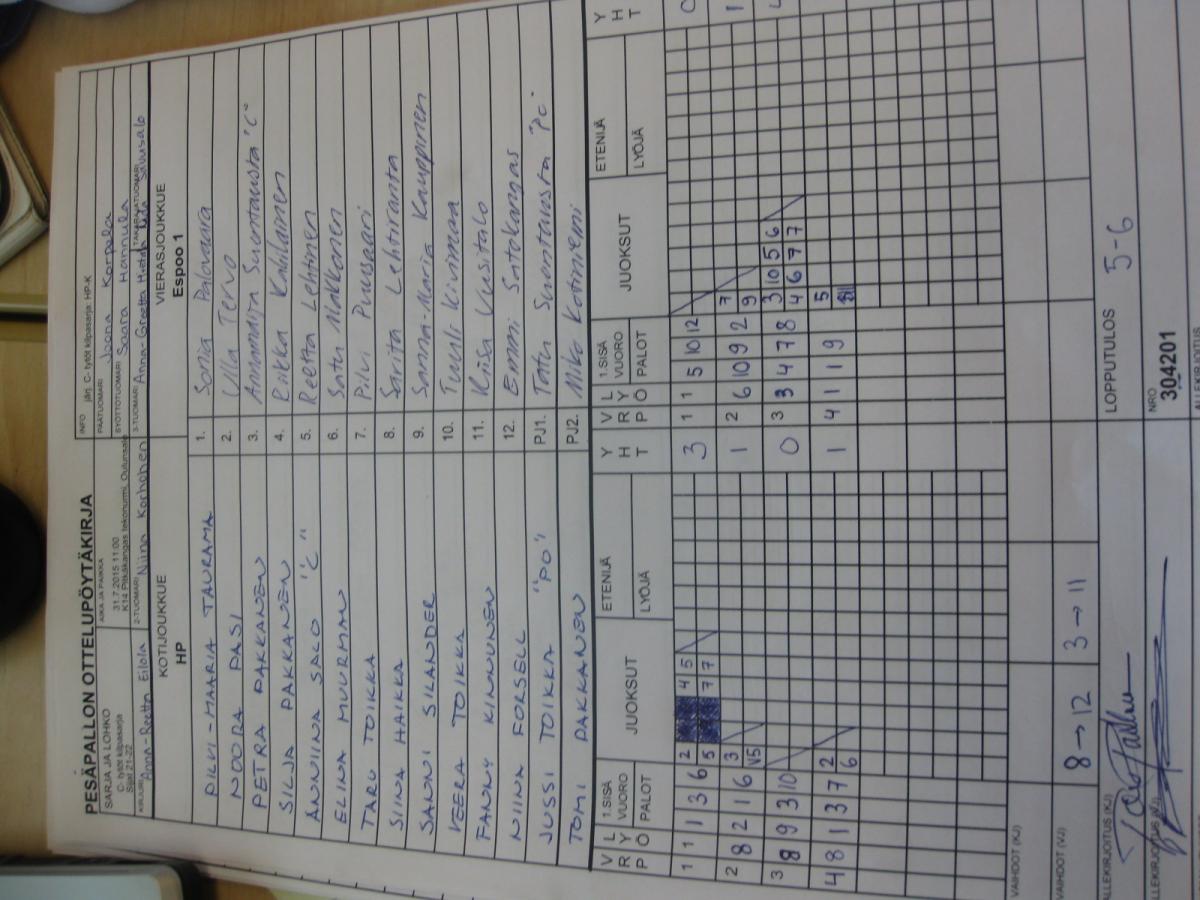 PESÄPALLON OTTELUPÖYTÄKIRJA
SARJA JA LOHKO
C- tytöt kilpasarja
Sijat 21-22
AIKA JA PAIKKA
31.7.2015 11:00
K14 Pitkäkangas tekonurmi, Oulunsalo
INFO jarj. C- tytöt kilpasarja: HP-K
PÄÄTUOMARI Jaana Korpela
SYÖTTÖTUOMARI Saara Hannula
KIRJURI Anna-Reetta Eilola
2-TUOMARI Niina Korhonen
3-TUOMARI Anna-Greetta
TAKARAJATUOMARI Savusalo
KOTIJOUKKUE
HP
VIERASJOUKKUE
Espoo 1
PILVI-MAARIA TAURAMA 1. Sonia Palovaara
NOORA PASI 2. Ulla Tervo
PETRA PAKKANEN 3. Annamaija Suontausta "C"
SILJA PAKKANEN 4. Riikka Kahilainen
ANNIINA SALO "C" 5. Reetta Lehtinen
ELINA MUURMAN 6. Satu Makkonen
TARU TOIKKA 7. Pilvi Puusaari
SIINA HAIKKA 8. Sarita Lehtiranta
SANNI SILANDER 9. Sanna-Maria Kamppinen
VEERA TOIKKA 10. Tuuli Kivimaa
FANNY KINNUNEN 11. Kiisa Uusitalo
NIINA FORSELL 12. Emmi Satokangas
JUSSI TOIKKA "PO" PJ1. Tatu Suontausta "PC"
TOMI PAKKANEN PJ2. Miko Kotiniemi
V R P L Y Ö 1.SISÄ VUORO PALOT JUOKSUT ETENIJÄ LYÖJÄ Y H T V R P L Y Ö 1.SISÄ VUORO PALOT JUOKSUT ETENIJÄ LYÖJÄ Y H T
1 1 1 3 6 2 4 5 3 1 1 5 10 12
5 7 7
2 8 2 1 6 3 1 2 6 10 9 2 7
V5 9
3 8 9 3 10 0 3 3 4 7 8 3 10 5 6
4 6 7 7
4 8 1 3 7 2 1 4 1 1 9 5
6
VAIHDOT (KJ)
VAIHDOT (VJ) 8→12 3→11
ALLEKIRJOITUS (KJ)
LOPPUTULOS 5-6
ALLEKIRJOITUS (VJ)
NRO
304201
ALLEKIRJOITUS